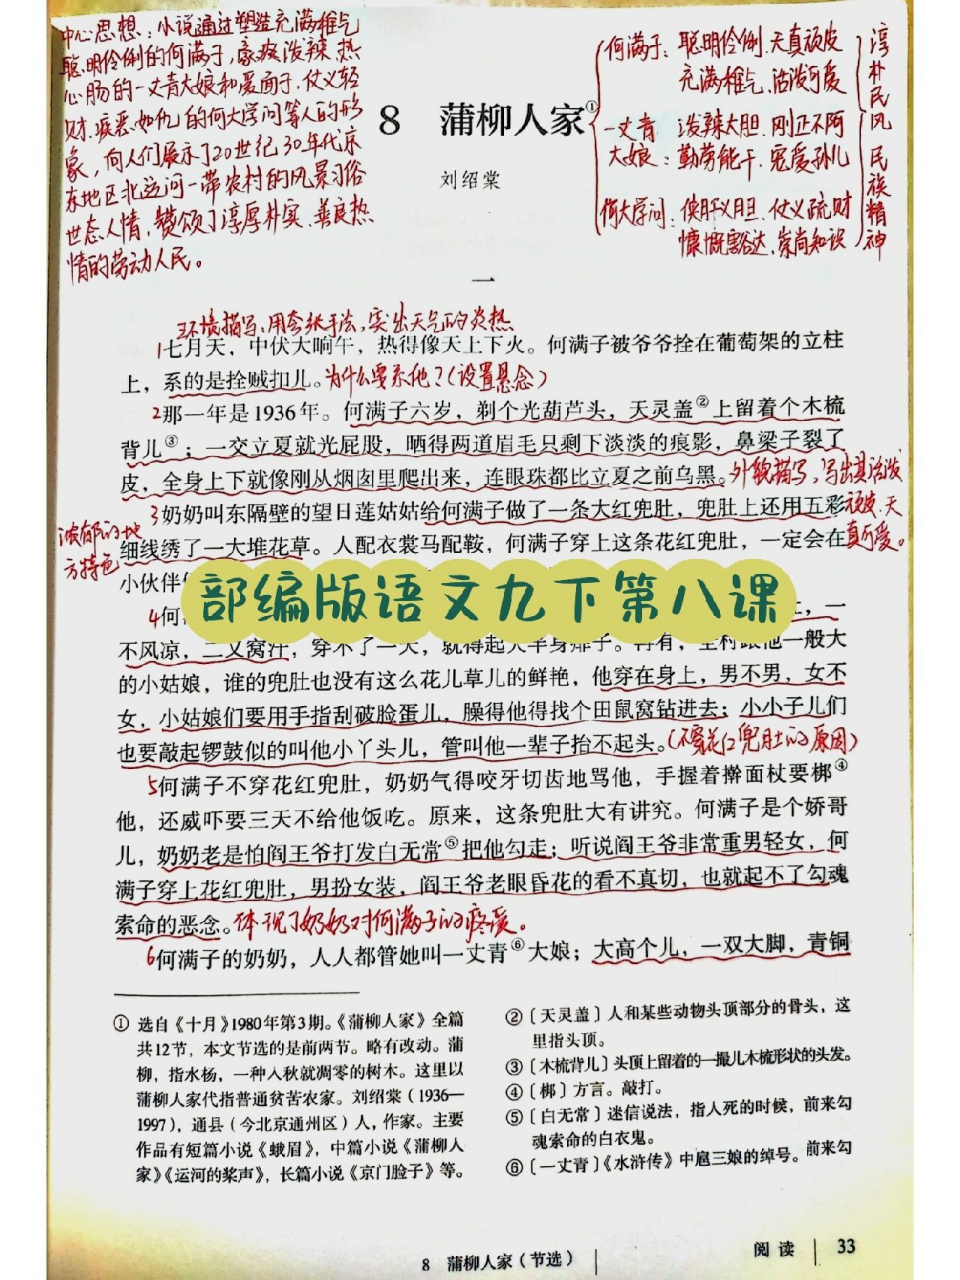 中心思想：小说通过塑造充满稚气
聪明伶俐的何满子，豪爽泼辣、热
心肠的一丈青大娘和爱面子、仗义轻
财、疾恶如仇的何大学问等人的形
象，向人们展示了20世纪30年代京
东地区北运河一带农村的风景习俗
世态人情，赞颂了淳厚朴实、善良热
情的劳动人民。
8 蒲柳人家①
刘绍棠
何满子：聪明伶俐、天真顽皮
充满稚气、活泼可爱
一丈青大娘：泼辣大胆、刚正不阿
勤劳能干、宠爱孙儿
何大学问：侠肝义胆、仗义疏财
慷慨豁达、崇尚知识
淳朴民风 民族精神
一
环境描写、用夸张手法，突出天气的炎热
1七月天，中伏大晌午，热得像天上下火。何满子被爷爷拴在葡萄架的立柱
上，系的是拴贼扣儿。为什么要系他？（设置悬念）
2那一年是1936年。何满子六岁，剃个光葫芦头，天灵盖②上留着个木梳
背儿③；一交立夏就光屁股，晒得两道眉毛只剩下淡淡的痕影，鼻梁子裂了
皮，全身上下就像刚从烟囱里爬出来，连眼珠都比立夏之前乌黑。外貌描写，写出其活泼
顽皮、天
真可爱。
3奶奶叫东隔壁的望日莲姑姑给何满子做了一条大红兜肚，兜肚上还用五彩
浓郁的地
方特色
细线绣了一大堆花草。人配衣裳马配鞍，何满子穿上这条花红兜肚，一定会在
小伙伴
部编版语文九下第八课
4何
上，一
不风凉，二又窝汗，穿不了一天，就得起大半身痱子。再有，全村跟他一般大
的小姑娘，谁的兜肚也没有这么花儿草儿的鲜艳，他穿在身上，男不男，女不
女，小姑娘们要用手指刮破脸蛋儿，臊得他得找个田鼠窝钻进去；小小子儿们
也要敲起锣鼓似的叫他小丫头儿，管叫他一辈子抬不起头。（不穿花红兜肚的原因）
5何满子不穿花红兜肚，奶奶气得咬牙切齿地骂他，手握着擀面杖要梆④
他，还威吓要三天不给他饭吃。原来，这条兜肚大有讲究。何满子是个娇哥
儿，奶奶老是怕阎王爷打发白无常⑤把他勾走；听说阎王爷非常重男轻女，何
满子穿上花红兜肚，男扮女装，阎王爷老眼昏花的看不真切，也就起不了勾魂
索命的恶念。体现了奶奶对何满子的疼爱。
6何满子的奶奶，人人都管她叫一丈青⑥大娘；大高个儿，一双大脚，青铜
① 选自《十月》1980年第3期。《蒲柳人家》全篇
共12节，本文节选的是前两节。略有改动。蒲
柳，指水杨，一种入秋就凋零的树木。这里以
蒲柳人家代指普通贫苦农家。刘绍棠（1936—
1997），通县（今北京通州区）人，作家。主要
作品有短篇小说《蛾眉》，中篇小说《蒲柳人
家》《运河的桨声》，长篇小说《京门脸子》等。
②〔天灵盖〕人和某些动物头顶部分的骨头，这
里指头顶。
③〔木梳背儿〕头顶上留着的一撮儿木梳形状的头发。
④〔梆〕方言。敲打。
⑤〔白无常〕迷信说法，指人死的时候，前来勾
魂索命的白衣鬼。
⑥〔一丈青〕《水浒传》中扈三娘的绰号。前来勾
8 蒲柳人家（节选）
阅读 33